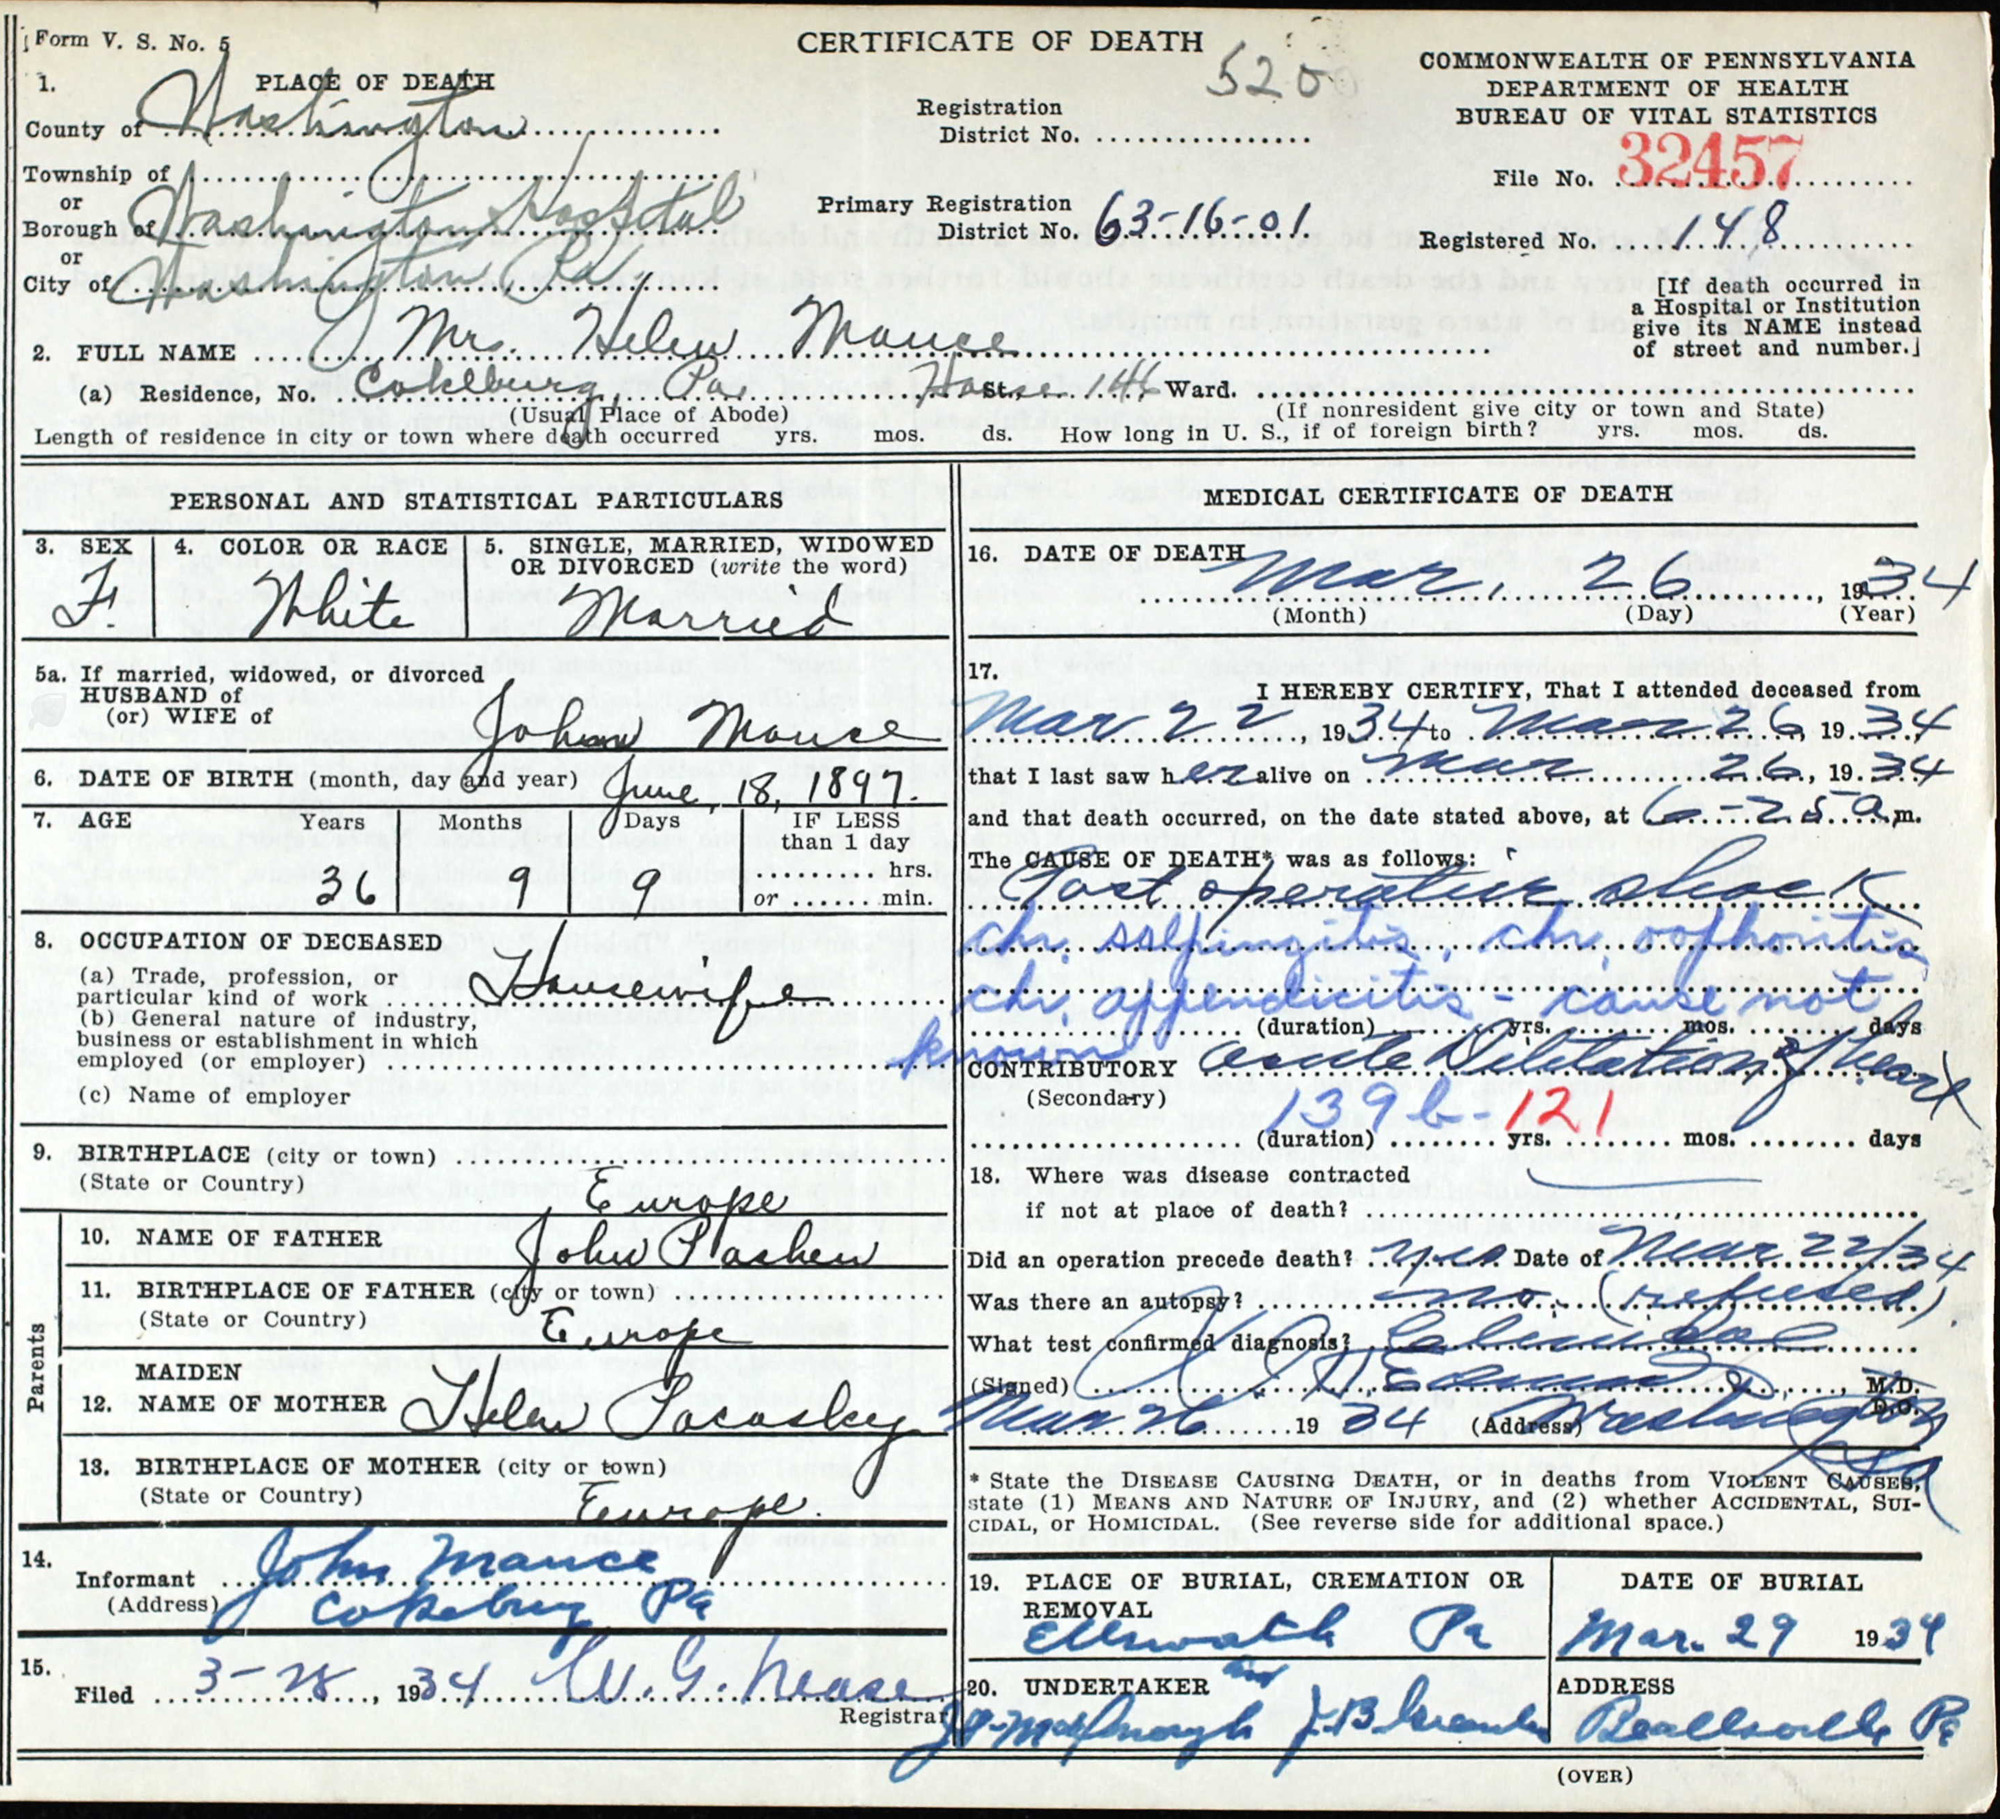 Form V. S. No. 5
CERTIFICATE OF DEATH
5200
COMMONWEALTH OF PENNSYLVANIA
DEPARTMENT OF HEALTH
BUREAU OF VITAL STATISTICS
1. PLACE OF DEATH
County of Washington
Township of
or
Borough of Washington Hospital
or
City of Washington, Pa.
Registration
District No.
Primary Registration
District No. 63-16-01
File No. 32457
Registered No. 148
[If death occurred in
a Hospital or Institution
give its NAME instead
of street and number.]
2. FULL NAME Mrs. Helen Mance
(a) Residence, No. Cokeburg, Pa House St. 146 Ward.
(Usual Place of Abode) (If nonresident give city or town and State)
Length of residence in city or town where death occurred yrs. mos. ds. How long in U. S., if of foreign birth? yrs. mos. ds.
PERSONAL AND STATISTICAL PARTICULARS
3. SEX 4. COLOR OR RACE 5. SINGLE, MARRIED, WIDOWED
OR DIVORCED (write the word)
F White Married
5a. If married, widowed, or divorced
HUSBAND of
(or) WIFE of
John Mance
6. DATE OF BIRTH (month, day and year) June, 18, 1897.
7. AGE Years Months Days IF LESS
than 1 day
hrs.
36 9 9 or min.
8. OCCUPATION OF DECEASED
(a) Trade, profession, or
particular kind of work Housewife
(b) General nature of industry,
business or establishment in which
employed (or employer)
(c) Name of employer
9. BIRTHPLACE (city or town)
(State or Country) Europe
Parents
10. NAME OF FATHER John Pashen
11. BIRTHPLACE OF FATHER (city or town)
(State or Country) Europe
MAIDEN
12. NAME OF MOTHER Helen
13. BIRTHPLACE OF MOTHER (city or town)
(State or Country) Europe.
14.
Informant John Mance
(Address) Cokeburg Pa
15.
Filed 3-28, 1934 W. G. Nease
Registrar
MEDICAL CERTIFICATE OF DEATH
16. DATE OF DEATH Mar. 26, 1934
(Month) (Day) (Year)
17.
I HEREBY CERTIFY, That I attended deceased from
Mar 22, 1934 to Mar 26, 1934
that I last saw her alive on Mar 26, 1934
and that death occurred, on the date stated above, at 6-25 a.m.
The CAUSE OF DEATH* was as follows:
Post operative shock
chr. salpingitis, chr. oophoritis
chr. appendicitis - cause not
(duration) yrs. mos. days
known
CONTRIBUTORY Acute Dilatation of heart
(Secondary)
139b - 121
(duration) yrs. mos. days
18. Where was disease contracted
if not at place of death?
Did an operation precede death? yes Date of Mar 22/34
Was there an autopsy? no. (refused)
What test confirmed diagnosis?
(Signed) M.D.
D.O.
Mar 26 1934 (Address) Washington
Pa
* State the DISEASE CAUSING DEATH, or in deaths from VIOLENT CAUSES,
state (1) MEANS AND NATURE OF INJURY, and (2) whether ACCIDENTAL, SUI-
CIDAL, or HOMICIDAL. (See reverse side for additional space.)
19. PLACE OF BURIAL, CREMATION OR
REMOVAL
Ellsworth Pa
DATE OF BURIAL
Mar. 29 1934
20. UNDERTAKER
and
J. B.
ADDRESS
Beallsville Pa
(OVER)